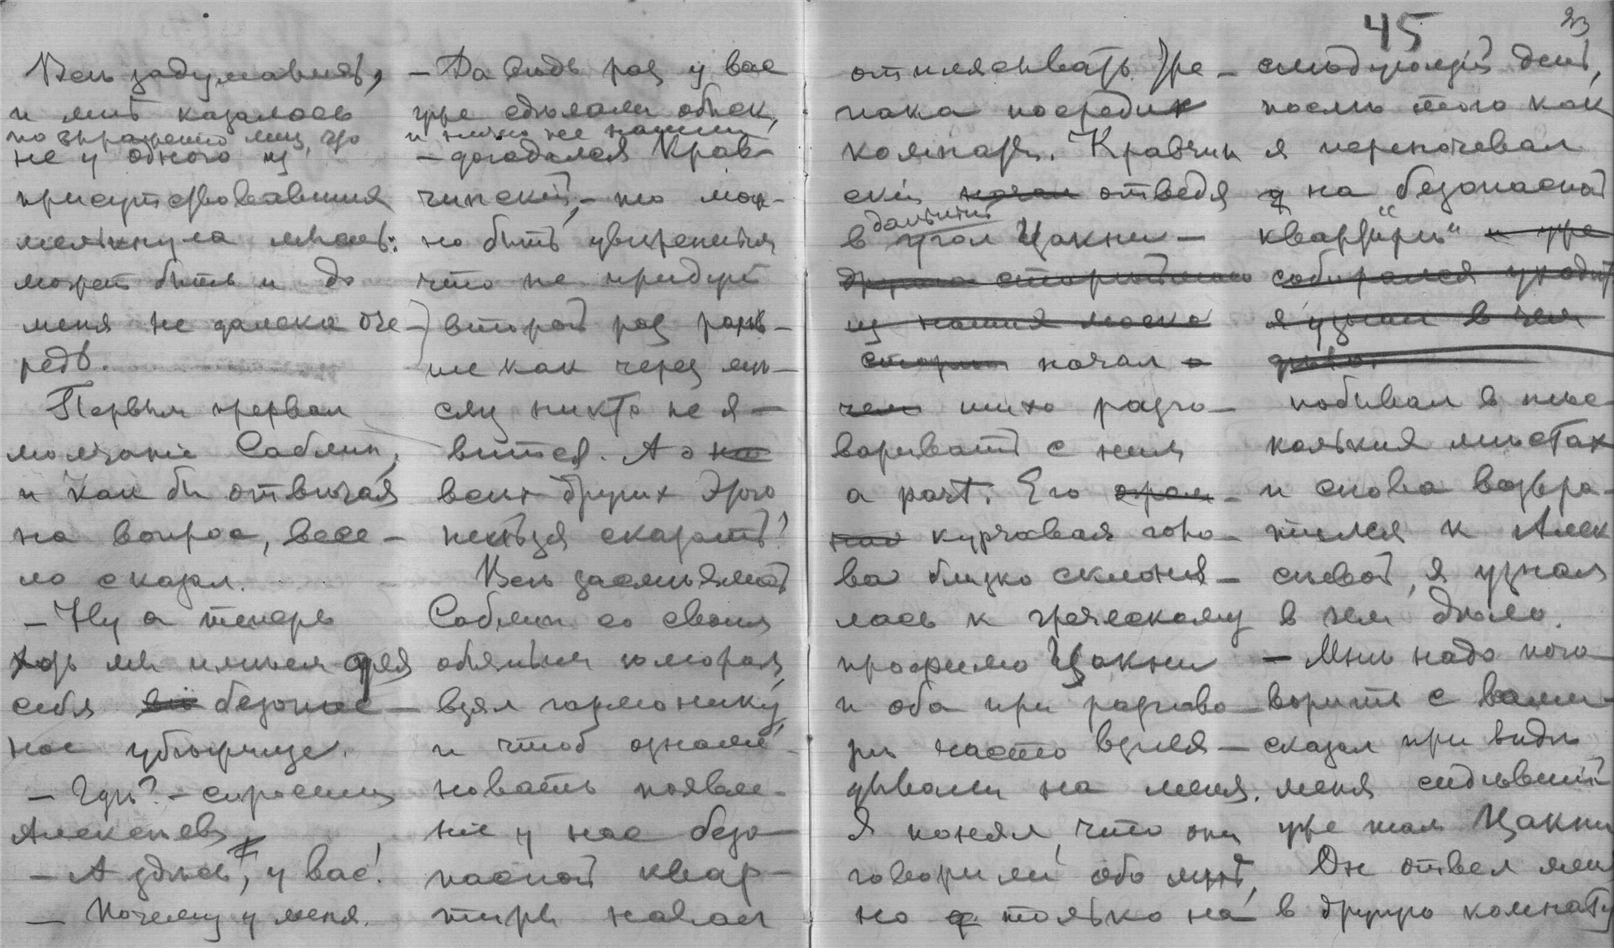 45
23
Все задумались,
и мне казалось
по выражению лиц, что
не у одного из
присутствовавших
мелькнула мысль:
может быть и до
меня не далека оче-
редь.
Первым прервал
молчание Саблин,
и как бы отвечая
на вопрос, весе-
ло сказал.
— Ну а теперь
хоть мы имеем для
себя безопас-
ное убежище.
— Где? — спросил
Алексеев,
— А здесь, у вас!
— Почему у меня.
— Да ведь раз у вас
уже сделали обыск,
и ничего не нашли
— догадался Крав-
чинский, — то мож-
но быть уверенным
что не придут
второй раз рань-
ше как через ме-
сяц никто не я-
вится. А о
всех других этого
нельзя сказать!
Все засмеялись
Саблин со своим
обычным юмором
взял гармонику,
и чтоб ознаме-
новать появле-
ние у нас безо-
пасной квар-
тиры начал
отплясывать тре-
пака посреди
комнаты. Кравчин
ский начал отведя
дальний
в угол Цакни —
другие
из наших
начал
тихо разго-
варивать с ним
a part. Его
курчавая голо-
ва близко склоня-
лась к греческому
профилю Цакни
и оба при разгово-
ре часто взгля-
дывали на меня.
Я понял, что они
говорили обо мне,
но только на
следующий день,
после того как
я переночевал
на безопасной
"квартире" и уже
собирался уходить
я узнал в чем
дело.
побывал в нес-
кольких местах
и снова возвра-
тился к Алек
сеевой, я узнал
в чем дело.
— Мне надо пого-
ворить с вами —
сказал при виде
меня сидевший
уже там Цакни
Он отвел меня
в другую комнату